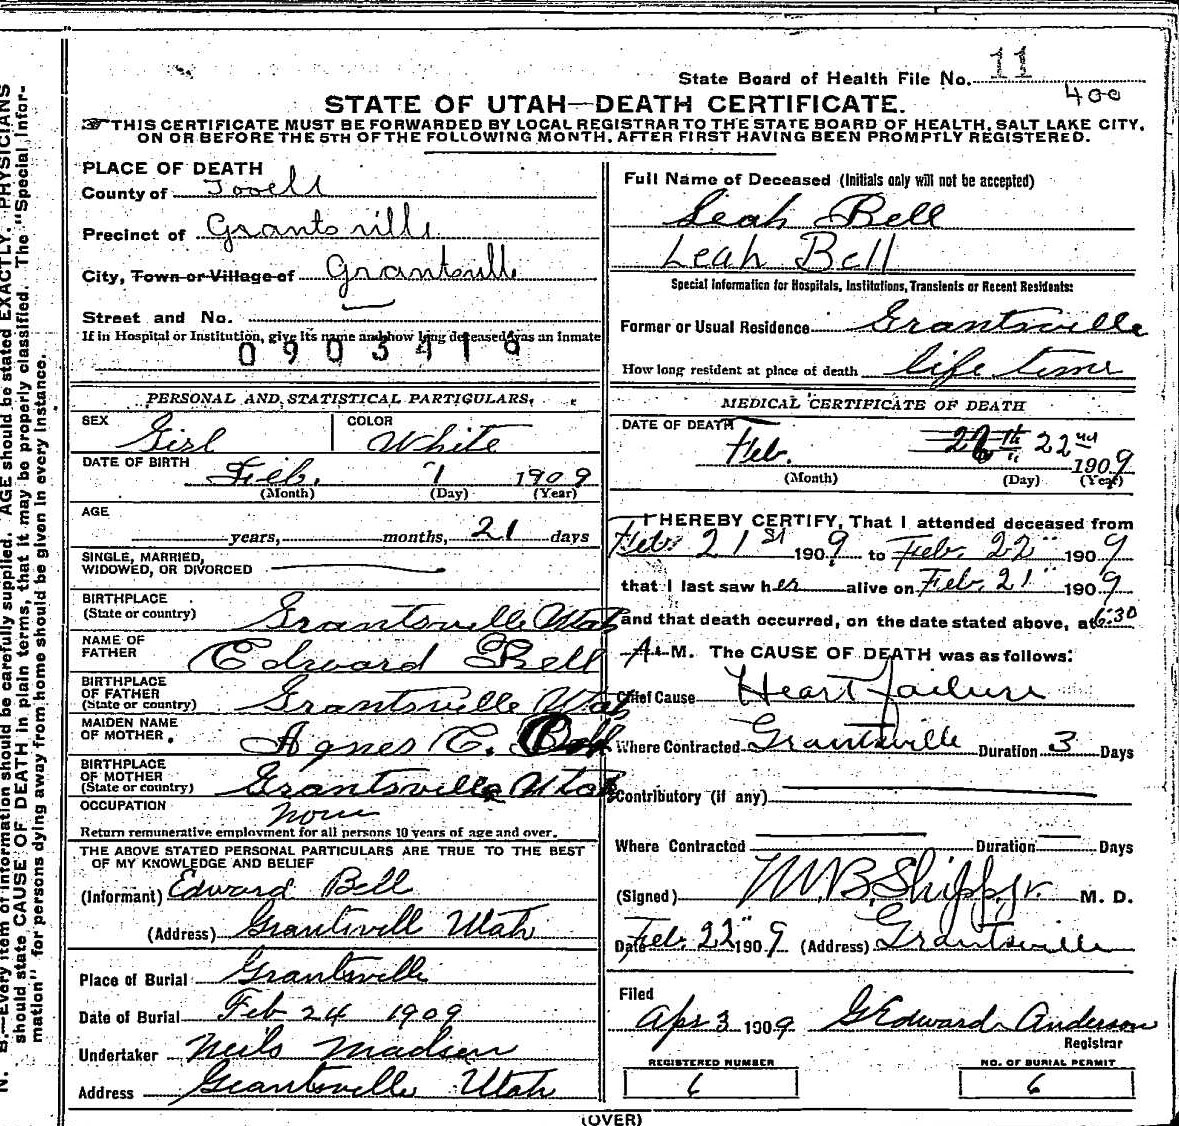 State Board of Health File No. 11
400
STATE OF UTAH—DEATH CERTIFICATE.
THIS CERTIFICATE MUST BE FORWARDED BY LOCAL REGISTRAR TO THE STATE BOARD OF HEALTH, SALT LAKE CITY,
ON OR BEFORE THE 5TH OF THE FOLLOWING MONTH, AFTER FIRST HAVING BEEN PROMPTLY REGISTERED.
PLACE OF DEATH
County of Tooell
Precinct of Grantsville
City, Town or Village of Grantsville
Street and No.
If in Hospital or Institution, give its name and how long deceased was an inmate
PERSONAL AND STATISTICAL PARTICULARS.
SEX Girl COLOR White
DATE OF BIRTH Feb. 1 1909
(Month) (Day) (Year)
AGE
years, months, 21 days
SINGLE, MARRIED,
WIDOWED, OR DIVORCED
BIRTHPLACE
(State or country) Grantsville Utah
NAME OF
FATHER Edward Bell
BIRTHPLACE
OF FATHER
(State or country) Grantsville Utah
MAIDEN NAME
OF MOTHER. Agnes C.
BIRTHPLACE
OF MOTHER
(State or country) Grantsville Utah
OCCUPATION none
Return remunerative employment for all persons 10 years of age and over.
THE ABOVE STATED PERSONAL PARTICULARS ARE TRUE TO THE BEST
OF MY KNOWLEDGE AND BELIEF
(Informant) Edward Bell
(Address) Grantsvill Utah
Place of Burial Grantsville
Date of Burial Feb 24 1909
Undertaker Neils Madsen
Address Grantsville Utah
Full Name of Deceased (Initials only will not be accepted)
Leah Bell
Leah Bell
Special Information for Hospitals, Institutions, Transients or Recent Residents:
Former or Usual Residence Grantsville
How long resident at place of death life time
MEDICAL CERTIFICATE OF DEATH
DATE OF DEATH
Feb. 22nd 1909
(Month) (Day) (Year)
I HEREBY CERTIFY, That I attended deceased from
Feb. 21st 1909 to Feb. 22" 1909
that I last saw her alive on Feb. 21" 1909
and that death occurred, on the date stated above, at 6:30
A. M. The CAUSE OF DEATH was as follows:
Chief Cause Heart failure
Where Contracted Grantsville Duration 3 Days
Contributory (if any)
Where Contracted Duration Days
(Signed) M. B. Shipp, Jr. M. D.
Date Feb. 22" 1909 (Address) Grantsville
Filed
Apr 3 1909 G Edward Anderson
Registrar
REGISTERED NUMBER NO. OF BURIAL PERMIT
6 6
(OVER)
N. B.—Every item of information should be carefully supplied. AGE should be stated EXACTLY. PHYSICIANS
should state CAUSE OF DEATH in plain terms, that it may be properly classified. The "Special Infor-
mation" for persons dying away from home should be given in every instance.